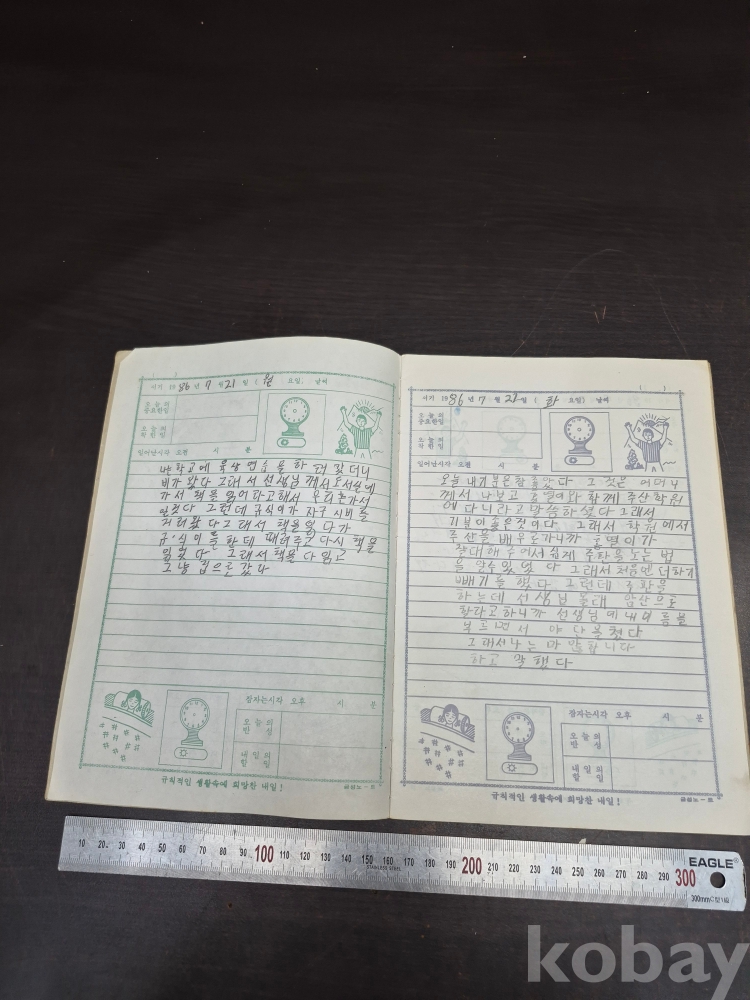 일기 1986년 7월 21일 (월 요일) 날씨
오늘의 중요한일
오늘의 착한일
일어난시각 오전 시 분
나는 학교에 육상 연습을 하러 갔더니
비가 왔다 그래서 선생님께서 도서실에
가서 책을 읽어라고해서 우리는가서
읽었다 그런데 규식이가 자구 시비를
거러왔다 그래서 책을 읽다가
규식이를 한데 때려주고 다시 책을
읽었다 그래서 책을 다 읽고
그냥 집으로 갔다
잠자는시각 오후 시 분
오늘의 반성
내일의 할일
규칙적인 생활속에 희망찬 내일!
일기 1986년 7월 22일 ( 화 요일) 날씨
오늘의 중요한일
오늘의 착한일
일어난시각 오전 시 분
오늘 내기분은 참 좋았다 그 것은 어머니
께서 나보고 홍열이와 함께 주산학원
에 다니라고 말씀하셨다 그래서
기분이 좋은것이다 그래서 학원에서
주산을 배우는데 홍열이가
해서 쉽게 주산을 놓는 법
을 알수 있었다 그래서 처음엔 더하기
빼기를 했다 그런데
하는데 선생님 몰래 암산으로
할라고 하니까 선생님이 내 이름을
부르면서 야단을 쳤다
그래서 나는
하고 말했다
잠자는시각 오후 시 분
오늘의 반성
내일의 할일
규칙적인 생활속에 희망찬 내일!
10 20 30 40 50 60 70 80 90 100 110 120 130 140 150 160 170 180 190 200 210 220 230 240 250 260 270 280 290 300
STAINLESS STEEL
EAGLE
300mm
kobay